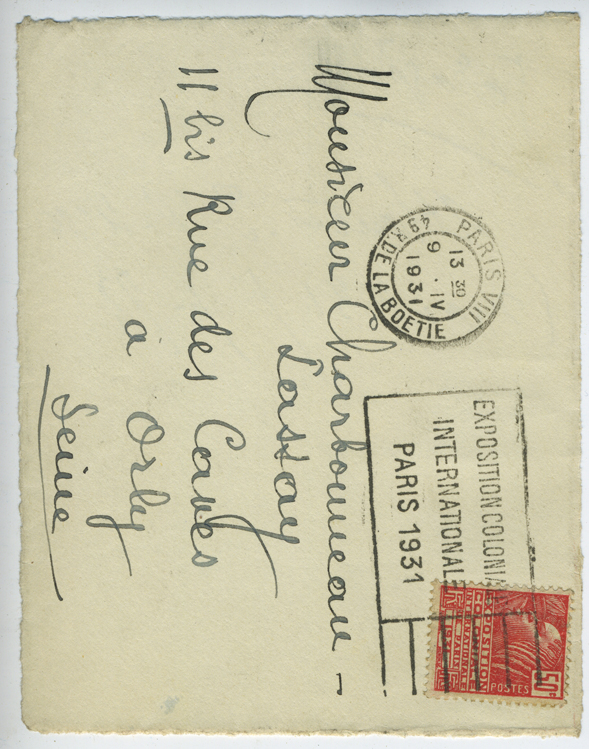 PARIS VIII
49 R. DE LA BOETIE
13 30
9 . IV
1931
EXPOSITION COLONIALE
INTERNATIONALE
PARIS 1931
EXPOSITION
COLONIALE
INTERNATIONALE
DE PARIS 1931
POSTES
50c
Monsieur Charbonneau -
Lassay
11 bis Rue des Caves
à Orly
Seine